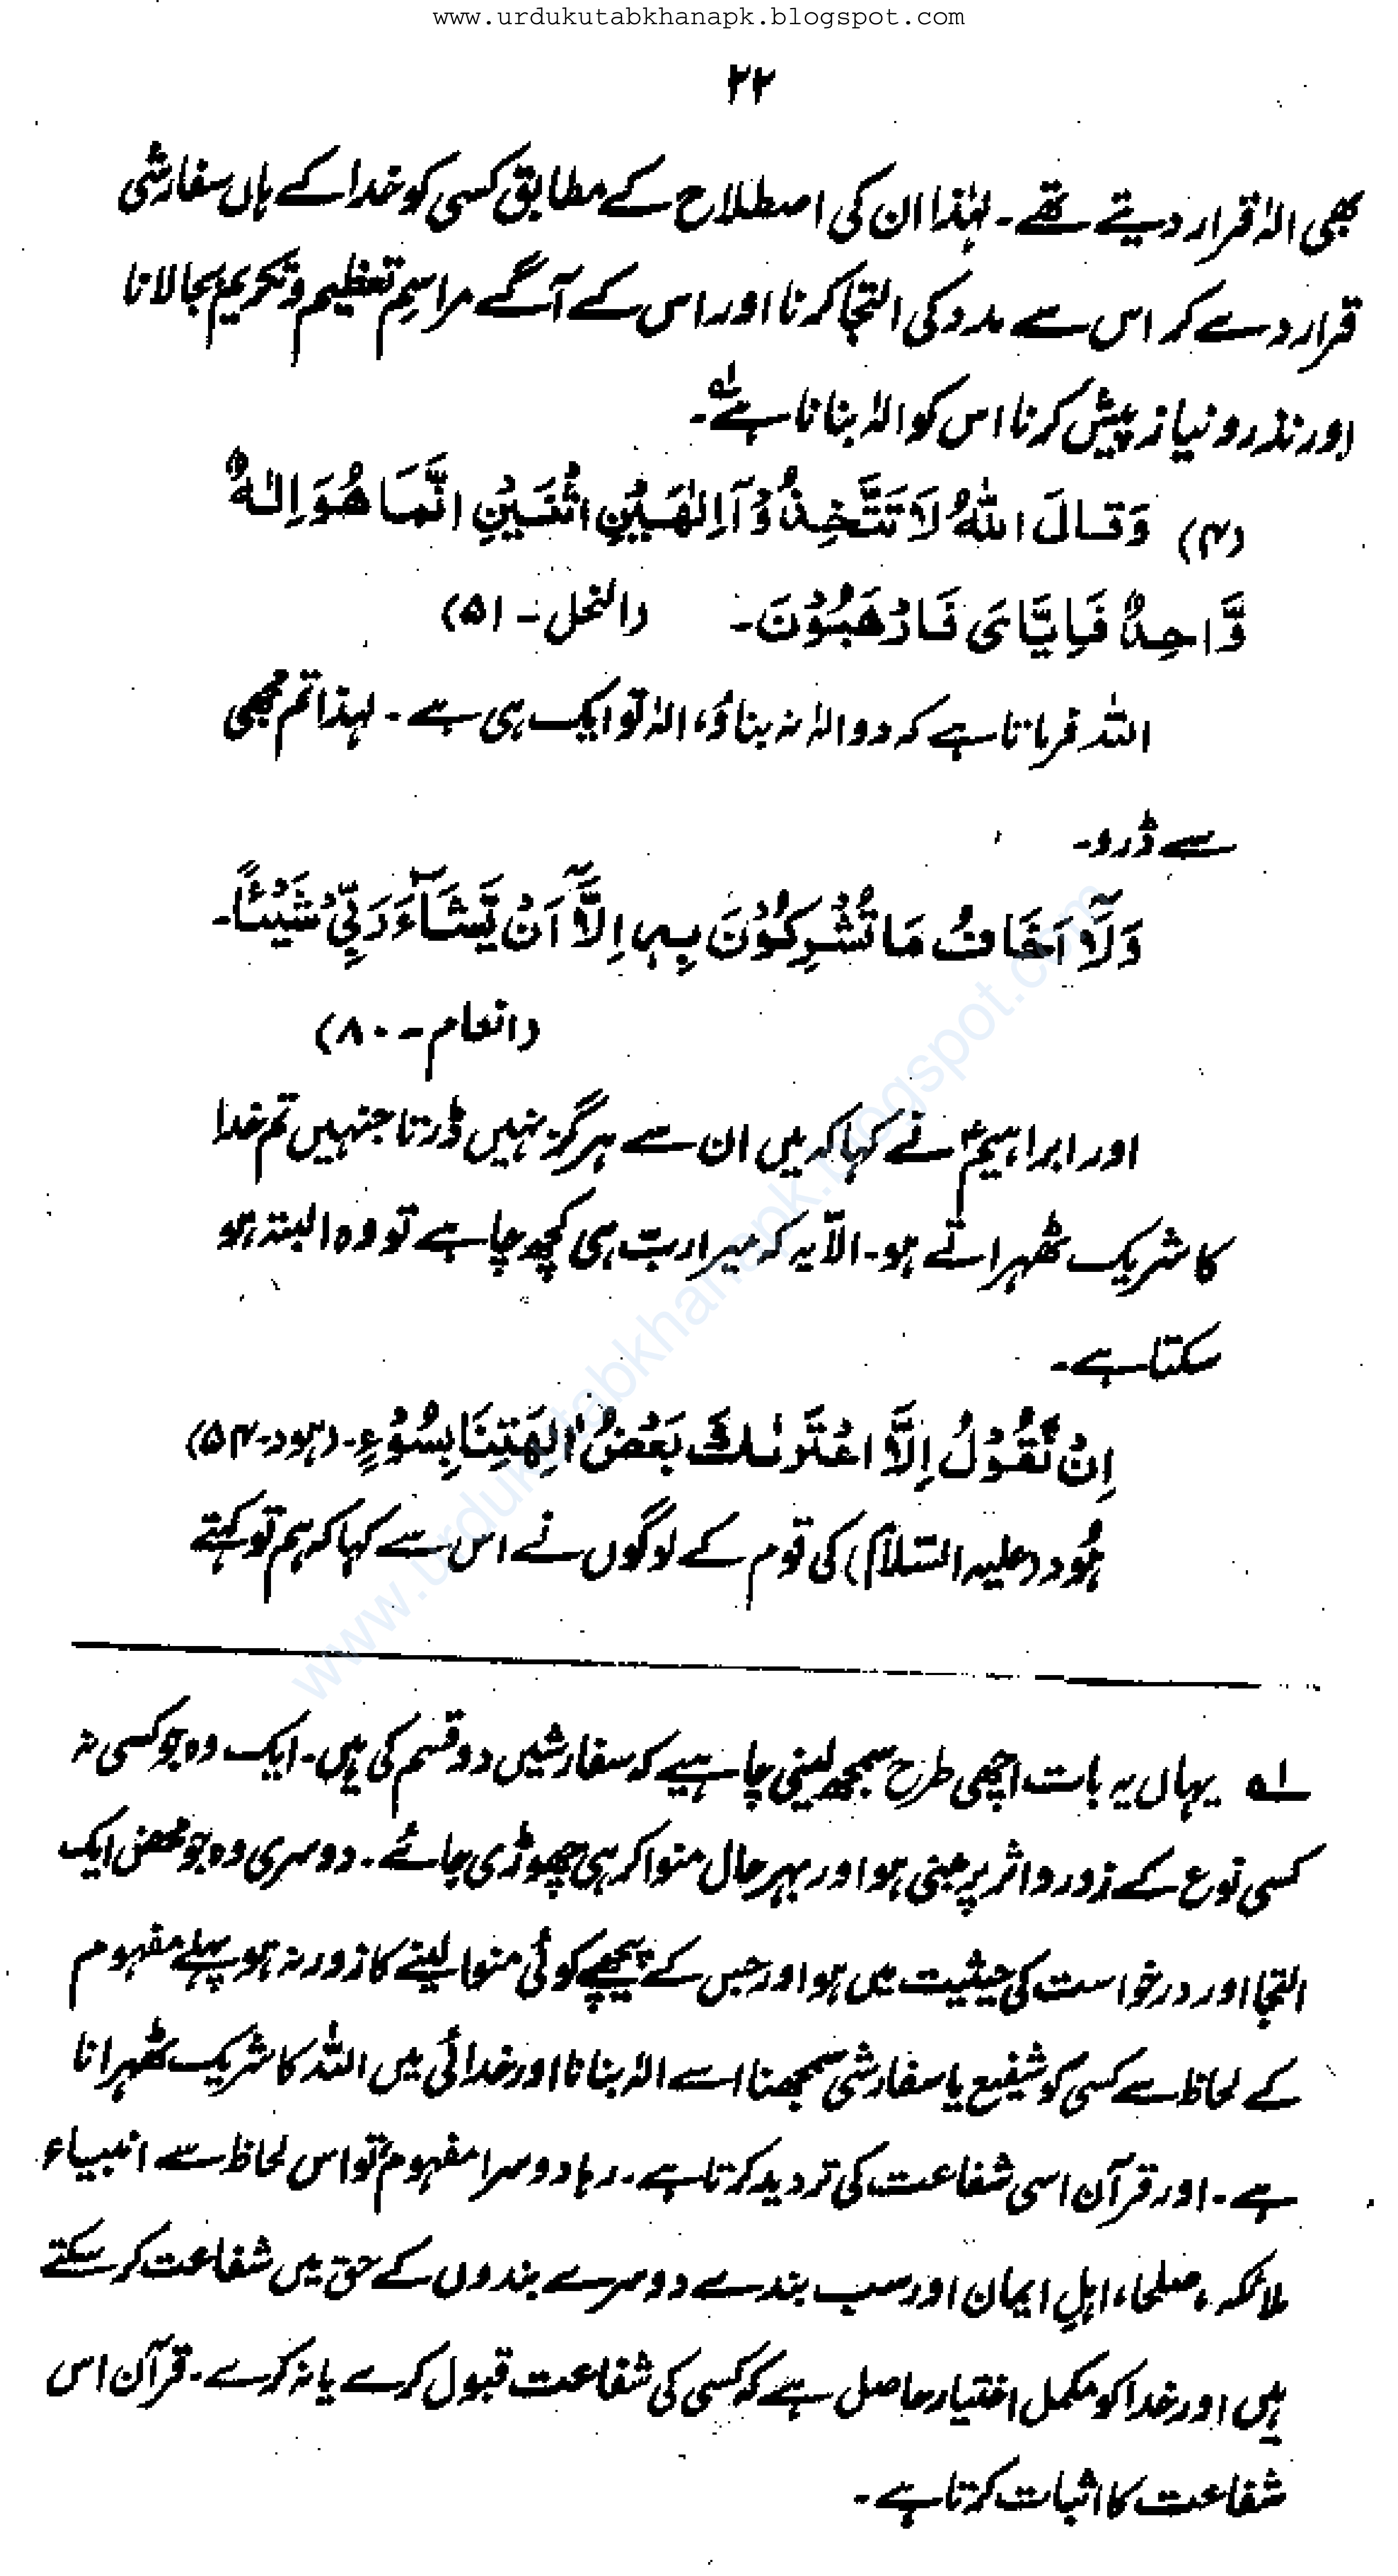 www.urdukutabkhanapk.blogspot.com
۲۲
بھی الٰہ قرار دیتے تھے۔ لہٰذا ان کی اصطلاح کے مطابق کسی کو خدا کے ہاں سفارشی
قرار دے کر اس سے مدد کی التجا کرنا اور اس کے آگے مراسمِ تعظیم و تکریم بجا لانا
اور نذر و نیاز پیش کرنا اس کو الٰہ بنانا ہے۔ ؎۱
(۴) وَقَالَ اللّٰهُ لَا تَتَّخِذُوْٓا اِلٰهَيْنِ اثْنَيْنِ اِنَّمَا هُوَ اِلٰهٌ
وَّاحِدٌ فَاِيَّايَ فَارْهَبُوْنَ۔ (النحل - ۵۱)
اللہ فرماتا ہے کہ دو الٰہ نہ بناؤ، الٰہ تو ایک ہی ہے۔ لہذا تم مجھی
سے ڈرو۔
وَلَآ اَخَافُ مَا تُشْرِكُوْنَ بِهٖٓ اِلَّآ اَنْ يَّشَآءَ رَبِّيْ شَيْئًا۔
(انعام - ۸۰)
اور ابراہیمؑ نے کہا کہ میں ان سے ہرگز نہیں ڈرتا جنہیں تم خدا
کا شریک ٹھہراتے ہو۔ الّا یہ کہ میرا ربّ ہی کچھ چاہے تو وہ البتہ ہو
سکتا ہے۔
اِنْ نَّقُوْلُ اِلَّا اعْتَرٰىكَ بَعْضُ اٰلِهَتِنَا بِسُوْٓءٍ۔ (ہود - ۵۴)
ہُود (علیہ السّلام) کی قوم کے لوگوں نے اس سے کہا کہ ہم تو کہتے
؎۱ یہاں یہ بات اچھی طرح سمجھ لینی چاہیے کہ سفارشیں دو قسم کی ہیں۔ ایک وہ جو کسی نہ
کسی نوع کے زور و اثر پر مبنی ہو اور بہرحال منوا کر ہی چھوڑی جائے۔ دوسری وہ جو محض ایک
التجا اور درخواست کی حیثیت میں ہو اور جس کے پیچھے کوئی منوا لینے کا زور نہ ہو پہلے مفہوم
کے لحاظ سے کسی کو شفیع یا سفارشی سمجھنا اسے الٰہ بنانا اور خدائی میں اللہ کا شریک ٹھہرانا
ہے۔ اور قرآن اسی شفاعت کی تردید کرتا ہے۔ رہا دوسرا مفہوم تو اس لحاظ سے انبیاء
ملائکہ، صلحاء، اہلِ ایمان اور سب بندے دوسرے بندوں کے حق میں شفاعت کر سکتے
ہیں اور خدا کو مکمل اختیار حاصل ہے کہ کسی کی شفاعت قبول کرے یا نہ کرے۔ قرآن اس
شفاعت کا اثبات کرتا ہے۔
www.urdukutabkhanapk.blogspot.com